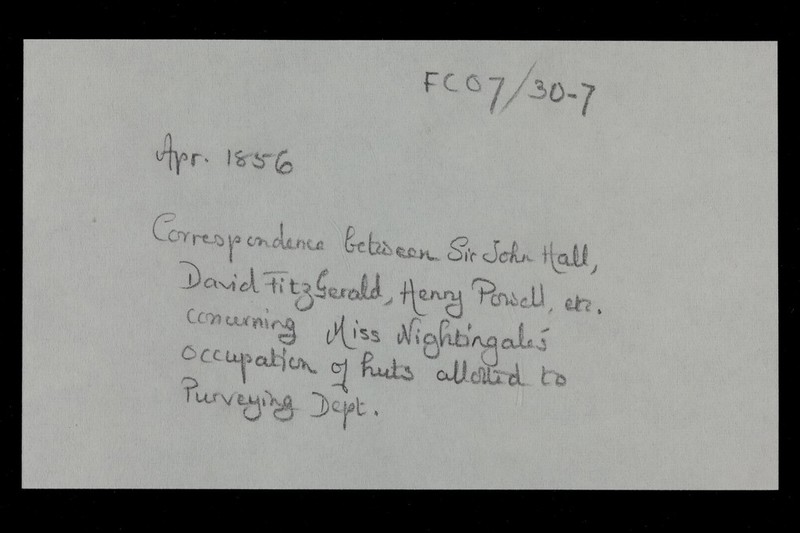 FCO7/30-7
Apr. 1856
Correspondence between Sir John Hall,
David FitzGerald, Henry Powell, etc.
concerning Miss Nightingale's
occupation of huts allotted to
Purveying Dept.